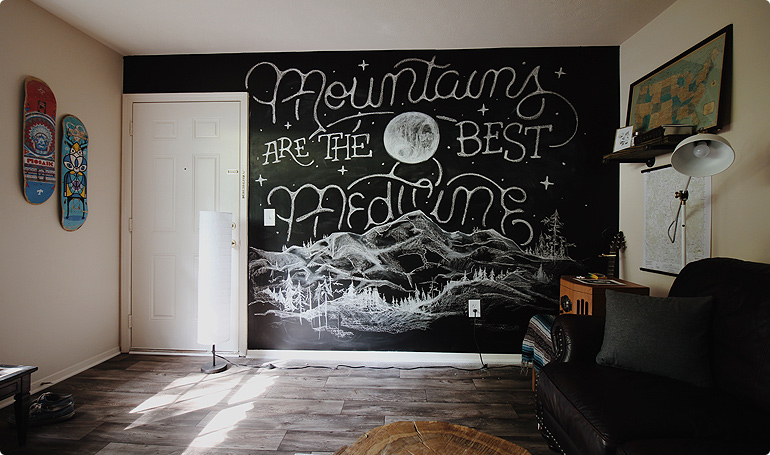 Mountains
ARE THE BEST
Medicine
MOSAIC